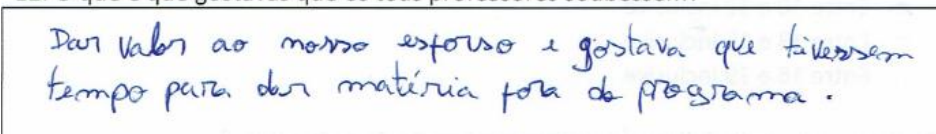 Dar valor ao nosso esforso e gostava que tivessem
tempo para dar matéria fora do programa.